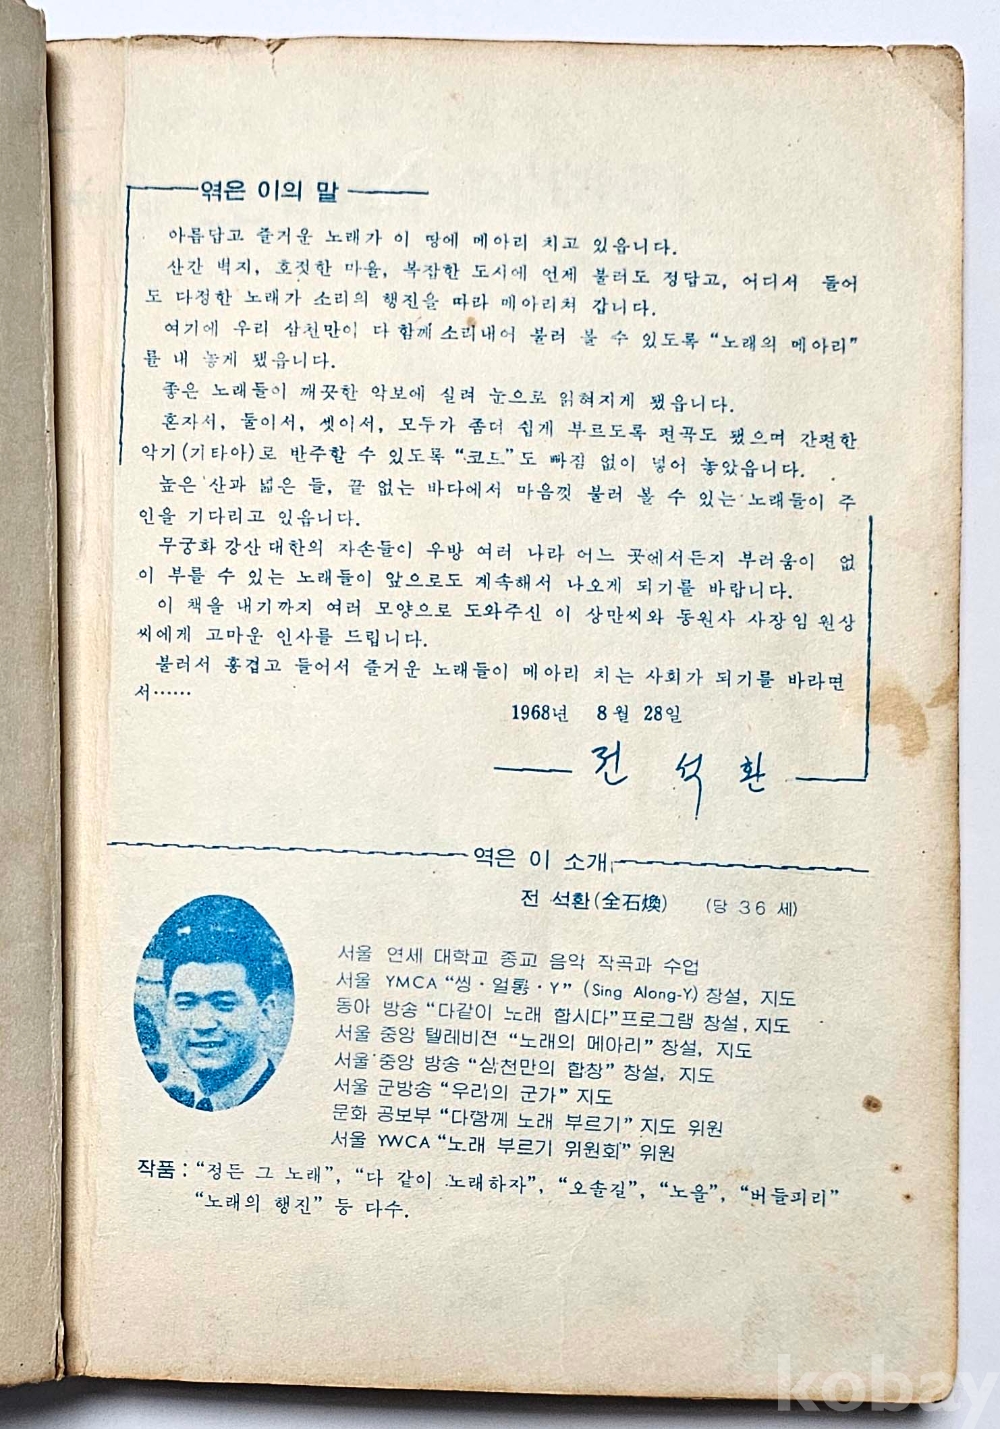 엮은 이의 말
아름답고 즐거운 노래가 이 땅에 메아리 치고 있읍니다.
산간 벽지, 호젓한 마을, 복잡한 도시에 언제 불러도 정답고, 어디서 들어
도 다정한 노래가 소리의 행진을 따라 메아리쳐 갑니다.
여기에 우리 삼천만이 다 함께 소리내어 불러 볼 수 있도록 “노래의 메아리”
를 내 놓게 됐읍니다.
좋은 노래들이 깨끗한 악보에 실려 눈으로 읽혀지게 됐읍니다.
혼자서, 둘이서, 셋이서, 모두가 좀더 쉽게 부르도록 편곡도 됐으며 간편한
악기(기타아)로 반주할 수 있도록 “코드”도 빠짐 없이 넣어 놓았읍니다.
높은 산과 넓은 들, 끝 없는 바다에서 마음껏 불러 볼 수 있는 노래들이 주
인을 기다리고 있읍니다.
무궁화 강산 대한의 자손들이 우방 여러 나라 어느 곳에서든지 부러움이 없
이 부를 수 있는 노래들이 앞으로도 계속해서 나오게 되기를 바랍니다.
이 책을 내기까지 여러 모양으로 도와주신 이 상만씨와 동원사 사장 임 원상
씨에게 고마운 인사를 드립니다.
불러서 흥겹고 들어서 즐거운 노래들이 메아리 치는 사회가 되기를 바라면
서……
1968년 8월 28일
전 석 환
엮은 이 소개
전 석환(全石煥) (당 36 세)
서울 연세 대학교 종교 음악 작곡과 수업
서울 YMCA “씽·얼롱·Y” (Sing Along-Y) 창설, 지도
동아 방송 “다같이 노래 합시다” 프로그램 창설, 지도
서울 중앙 텔레비젼 “노래의 메아리” 창설, 지도
서울 중앙 방송 “삼천만의 합창” 창설, 지도
서울 군방송 “우리의 군가” 지도
문화 공보부 “다함께 노래 부르기” 지도 위원
서울 YWCA “노래 부르기 위원회” 위원
작품 : “정든 그 노래”, “다 같이 노래하자”, “오솔길”, “노을”, “버들피리”
“노래의 행진” 등 다수.
kobay